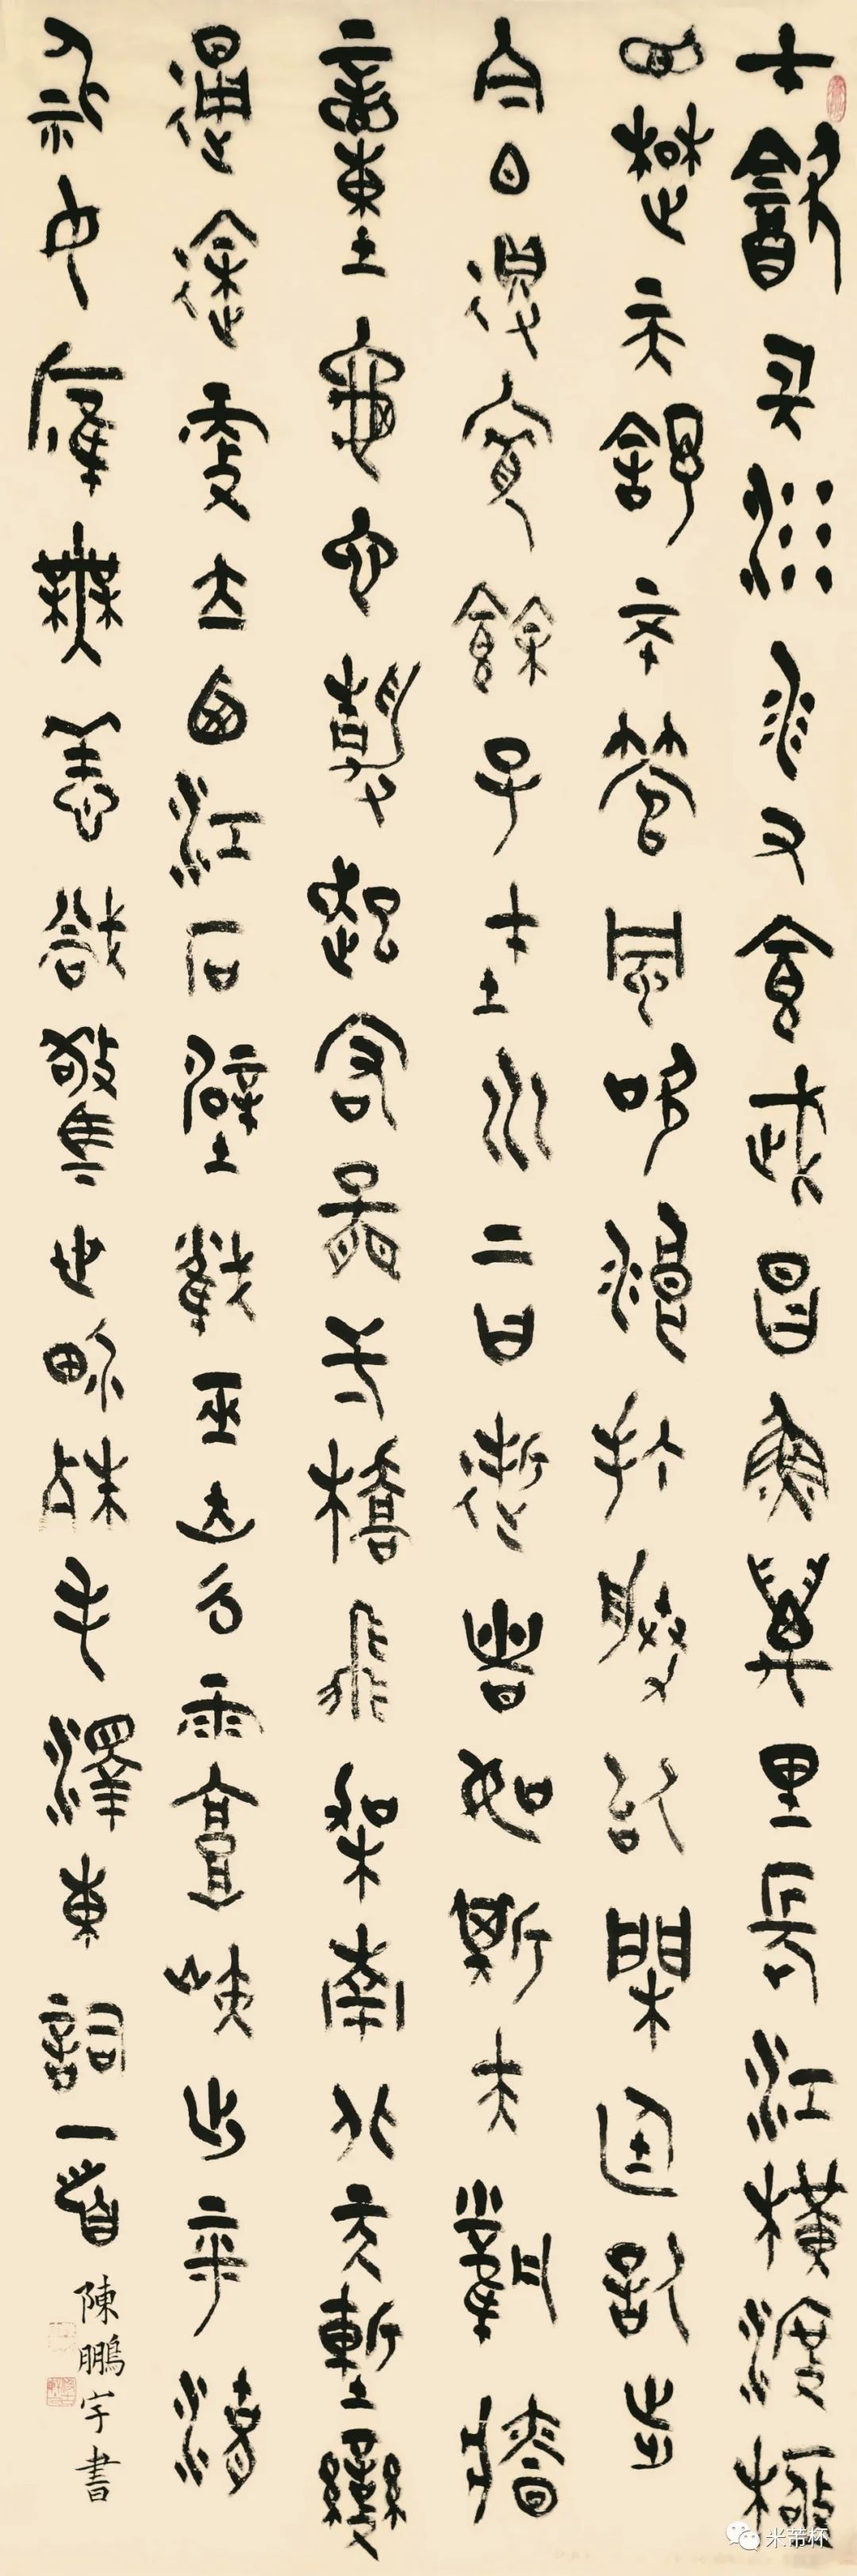 才飲長沙水又食武昌魚萬里長江橫渡極
目楚天舒不管風吹浪打勝似閒庭信步
今日得寬餘子在川上曰逝者如斯夫風檣
動龜蛇靜起宏圖一橋飛架南北天塹變
通途更立西江石壁截斷巫山雲雨高峽出平湖
神女應無恙當驚世界殊毛澤東詞一首
陳鵬宇書
米芾杯